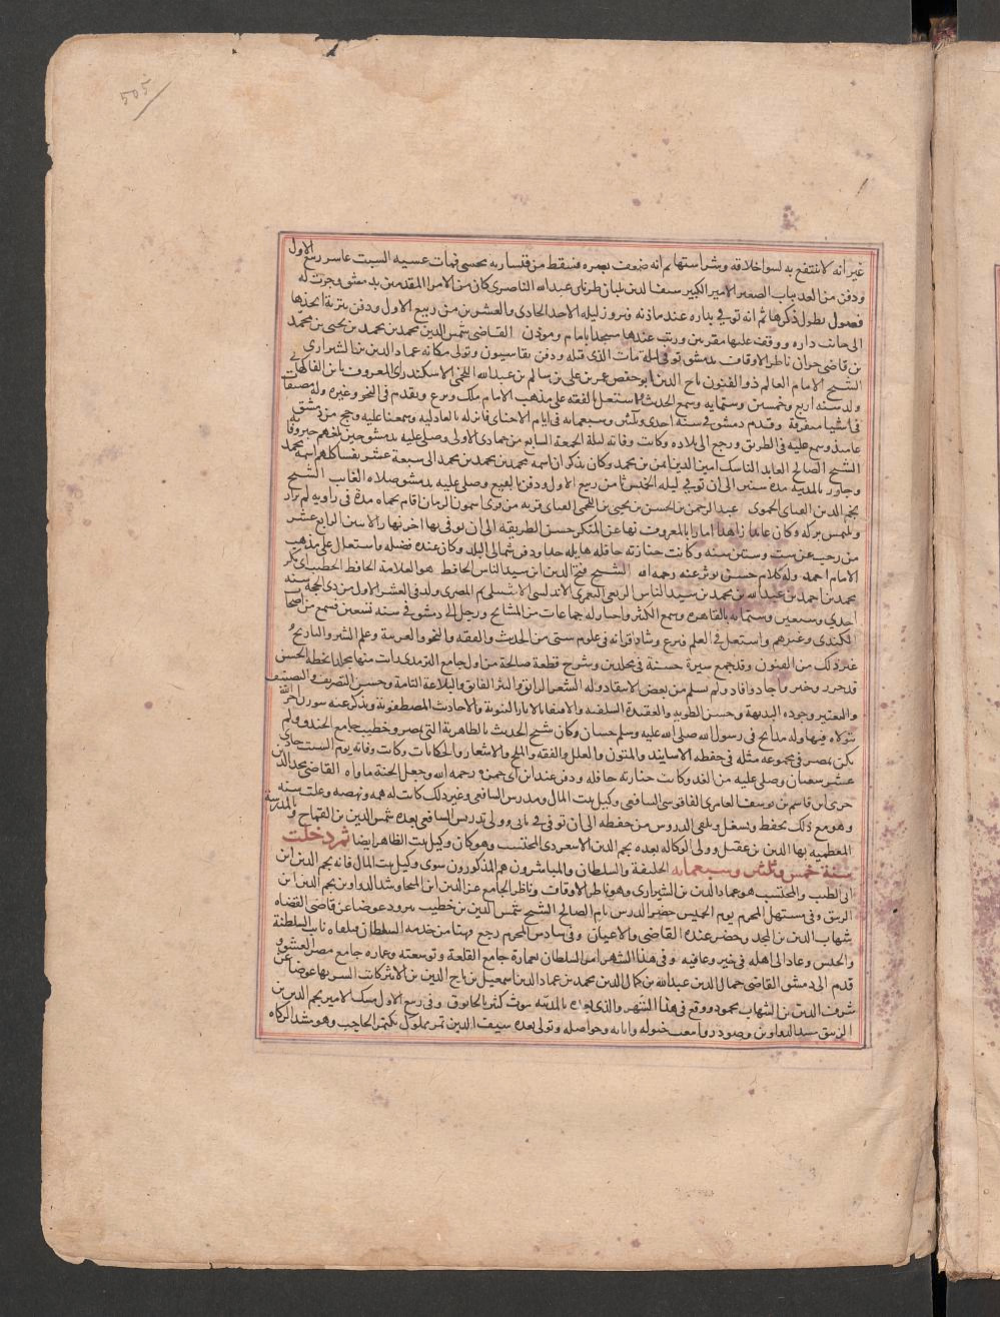 505
غير انه لا ينتفع به لسوا خلاقه وشراستها ثم انه ضعف بصره فسقط من قنساريه بحسى فمات عسيه السبت عاسر ربيع الاول
ودفن من الغد بباب الصغير الامير الكبير سيف الدين بلبان طرناى عبد الله الناصرى كان من الامرا المقدمين بدمشق وجرت له
فصول يطول ذكرها ثم انه توفي بداره عند ماذنه فيروز ليله الاحد الحادى والعشرين من ربيع الاول ودفن بتربة اتخذها
الى جانب داره ووقف عليها مقرين ورتب عندها مسجدا بامام وموذن القاضى شمس الدين محمد بن محمد بن يحيى بن محمد
بن قاضي حران ناظر الاوقاف بدمشق توفي ليله مات الذي قبله ودفن بقاسيون وتولى مكانه عماد الدين بن الشيرازي
الشيخ الامام العالم ذو الفنون تاج الدين ابو حفص عمر بن على بن سالم بن عبد الله اللخمي الاسكندراى المعروف بابن الفاكهانى
ولد سنه اربع وخمسين وستمايه وسمع الحديث واشتغل بالفقه على مذهب الامام ملك وبرع وتقدم في النحو وغيره وله مصنفات
في اشيا متفرقة وقدم دمشق في سنة احدى وثلثين وسبعمايه في ايام الاخناى فانزله بالعادليه وسمعنا عليه وحج من دمشق
عامئذ وسمع عليه في الطريق ورجع الى بلاده وكانت وفاته ليلة الجمعة السابع من جمادى الاولى وصلى عليه بدمشق حين بلغهم خبر وفاته
الشيخ الصالح العابد الناسك امين الدين ايمن بن محمد وكان يذكر ان اسمه محمد بن محمد بن محمد الى سبعة عشر نفسا كلهم اسمه محمد
وجاور بالمدينه مدة سنين الى ان توفي ليله الخميس ثامن ربيع الاول ودفن بالبقيع وصلى عليه بدمشق صلاه الغايب الشيخ
نجم الدين القباى الحموى عبد الرحمن بن الحسن بن يحيى بن اللخمى القباى قريه من قرى اسمون الرمان اقام بحماه مدة في زاويه لم يزار
ويلتمس بركه وكان عابدا زاهدا امارا بالمعروف نهاء عن المنكر حسن الطريقه الى ان توفي بها اخر نهار الاسن الرابع عشر
من رجب عن ست وستين سنه وكانت جنازته حافله هايله جدا ودفن شمالى البلد وكان عنده فضله واشتغال على مذهب
الامام احمد وله كلام حسن يوثر عنه رحمه الله الشيخ فتح الدين ابن سيد الناس الحافظ هو العلامة الحافظ الخطيب ابى بكر
محمد بن احمد بن عبد الله بن محمد بن سيد الناس الربعى اليعمرى الاندلسى الاشبيلى ثم المصرى ولد في العشر الاول من ذى الحجة سنه
احدى وسبعين وستمايه بالقاهره وسمع الكثير واجاز له جماعات من المشايخ ورحل الى دمشق في سنه تسعين فسمع من اصحاب
الكندى وغيرهم واشتغل في العلم فبرع وساد اقرانه في علوم ستى من الحديث والفقه والنحو والعربيه وعلم السير والتاريخ
وغير ذلك من الفنون وقد جمع سيرة حسنة في مجلدين وشرح قطعة صالحة من اول جامع الترمذى رايت منها مجلدا بخطه الحسن
قد حرر وخبر واجاد وافاد ولم يسلم من بعض الانتقاد وله الشعر الرايق والنثر الفايق والبلاغة التامة وحسن التصريف والتصنيف
والتعبير وجوده البديهة وحسن الطويه والعقيدة السلفيه والاقتفا بالاثار النبويه والاحاديث المصطفويه ويذكر عنه سو
بتولاه فيها وله مدايح في رسول الله صلى الله عليه وسلم حسان وكان شيخ الحديث بالظاهرية التى بمصر وخطيب جامع الخندق ولم
يكن بمصر في مجموعه مثله في حفظه الاسانيد والمتون والعلل والفقه والملح والاشعار والحكايات وكانت وفاته يوم السبت حادى
عشر شعبان وصلى عليه من الغد وكانت جنازته حافله ودفن عند ابن ابى جمره رحمه الله وجعل الجنة ماواه القاضى مجد الدين
حرمى بن قاسم بن يوسف العامرى الفاقوسى الشافعى وكيل بيت المال ومدرس الشافعى وغير ذلك كانت له همه ونهضه وعلت سنه
وهو مع ذلك يحفظ ويشغل ويلقى الدروس من حفظه الى ان توفي في ثانى وولى تدريس الشافعى بعده شمس الدين بن القماح و بالمدرسة
القطبيه بها الدين بن عقيل وولى الوكاله بعده نجم الدين الاسعردى المحتسب وهو كان وكيل بيت الظاهر ايضا ثم دخلت
سنة خمس وثلثين وسبعمايه الخليفة والسلطان والمباشرون هم المذكورون سوى وكيل بيت المال فانه نجم الدين ابن
ابى الطيب والمحتسب هو عماد الدين بن الشيرازى وهو ناظر الاوقاف وناظر الجامع عز الدين ابن المنجا وشد الدواوين بدر الدين ابن
الزيبق وفي مستهل المحرم يوم الخميس حضر الدرس بام الصالح الشيخ شمس الدين بن خطيب يبرود عوضا عن قاضى القضاه
شهاب الدين بن المجد وحضر عنده القاضى والاعيان وفي سادس المحرم رجع مهنا من خدمه السلطان فتلقاه نايب السلطنة
والجيش وعاد الى اهله في خير وعافيه وفي هذا الشهر امر السلطان بعمارة جامع القلعة وتوسعته وعماره جامع مصر العتيق و
قدم الى دمشق القاضى جمال الدين عبد الله بن كمال الدين محمد بن عماد الدين اسمعيل بن تاج الدين بن الاثير كاتب السر بها عوضا عن
شرف الدين بن الشهاب محمود ووقع في هذا الشهر والذى بعده بالمدينه موت كثير بالخانوق وفي ربيع الاول مسك الامير نجم الدين بن
الزيبق مشد الدواوين وصودر وابيعت خيوله واثاثه وحواصله وتولى بعده سيف الدين تمر مملوك بكتمر الحاجب وهو مشد الزكاه